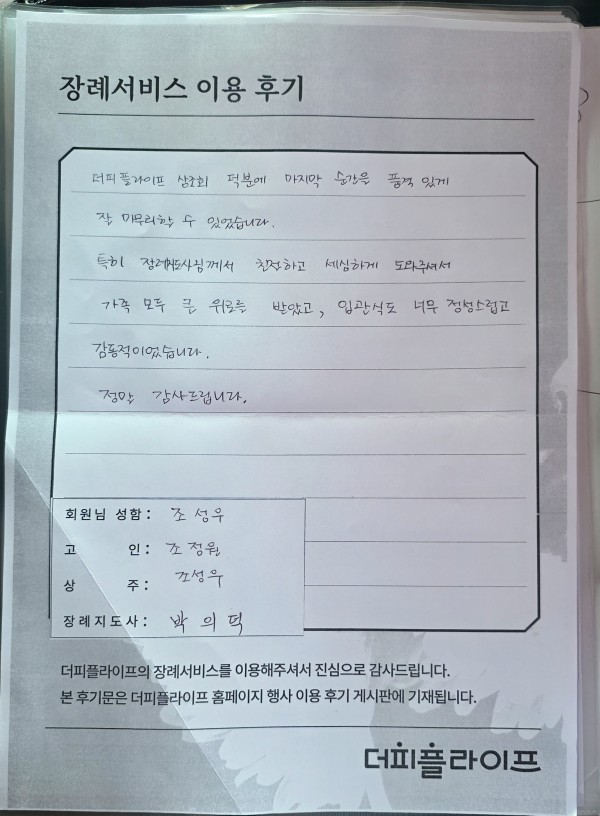 장례서비스 이용 후기
더피플라이프 상조회 덕분에 마지막 순간을 품격 있게
잘 마무리할 수 있었습니다.
특히 장례지도사님께서 친절하고 세심하게 도와주셔서
가족 모두 큰 위로를 받았고, 입관식도 너무 정성스럽고
감동적이었습니다.
정말 감사드립니다.
회원님 성함 : 조성우
고 인 : 조정원
상 주 : 조성우
장례지도사 : 박의덕
더피플라이프의 장례서비스를 이용해주셔서 진심으로 감사드립니다.
본 후기문은 더피플라이프 홈페이지 행사 이용 후기 게시판에 기재됩니다.
더피플라이프